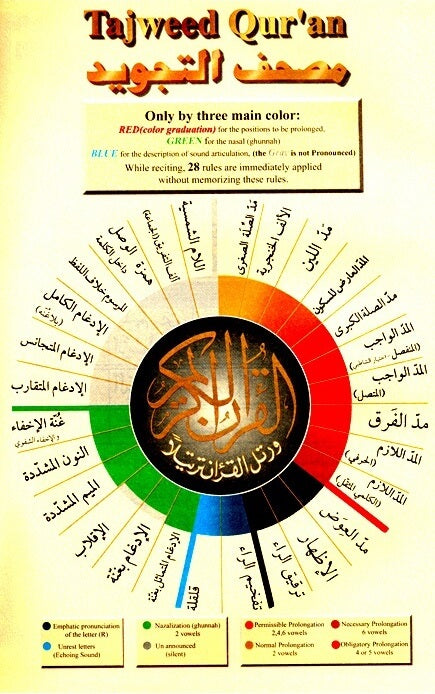 Tajweed Qur'an
مصحف التجويد
Only by three main color:
RED(color graduation) for the positions to be prolonged,
GREEN for the nasal (ghunnah)
BLUE for the description of sound articulation, (the Gray is not Pronounced)
While reciting, 28 rules are immediately applied
without memorizing these rules.
مدّ الصّلة الصغرى
الألف الخنجرية
مدّ اللين
المدّ العارض للسكون
مدّ الصلة الكبرى
المدّ الواجب
(المنفصل - اختيار الشاطبي)
المدّ الواجب
(المتصل)
مدّ الفَرق
المدّ اللازم
(الحرفي)
المدّ اللازم
(الكلمي المثقل)
مدّ العِوَض
الإظهار
ترقيق الراء
تفخيم الراء
قلقلة
الإدغام المتماثل بغنّة
الإدغام بغنّة
الإقلاب
الميم المشدّدة
النون المشدّدة
غنّة الإخفاء
والإخفاء الشفوي
الإدغام المتقارب
الإدغام المتجانس
الإدغام الكامل
(بلا غنّة)
المرسوم خلاف اللفظ
همزة الوصل
داخل الكلمة
ألف التفريق (الجماعة)
اللام الشمسية
القرآن الكريم
ورتل القرآن ترتيلاً
Emphatic pronunciation
of the letter (R)
Unrest letters
(Echoing Sound)
Nazalization (ghunnah)
2 vowels
Un announced
(silent)
Permissible Prolongation
2,4,6 vowels
Normal Prolongation
2 vowels
Necessary Prolongation
6 vowels
Obligatory Prolongation
4 or 5 vowels